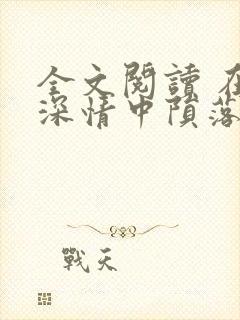 全文閱讀 在
深情中隕落
戰天